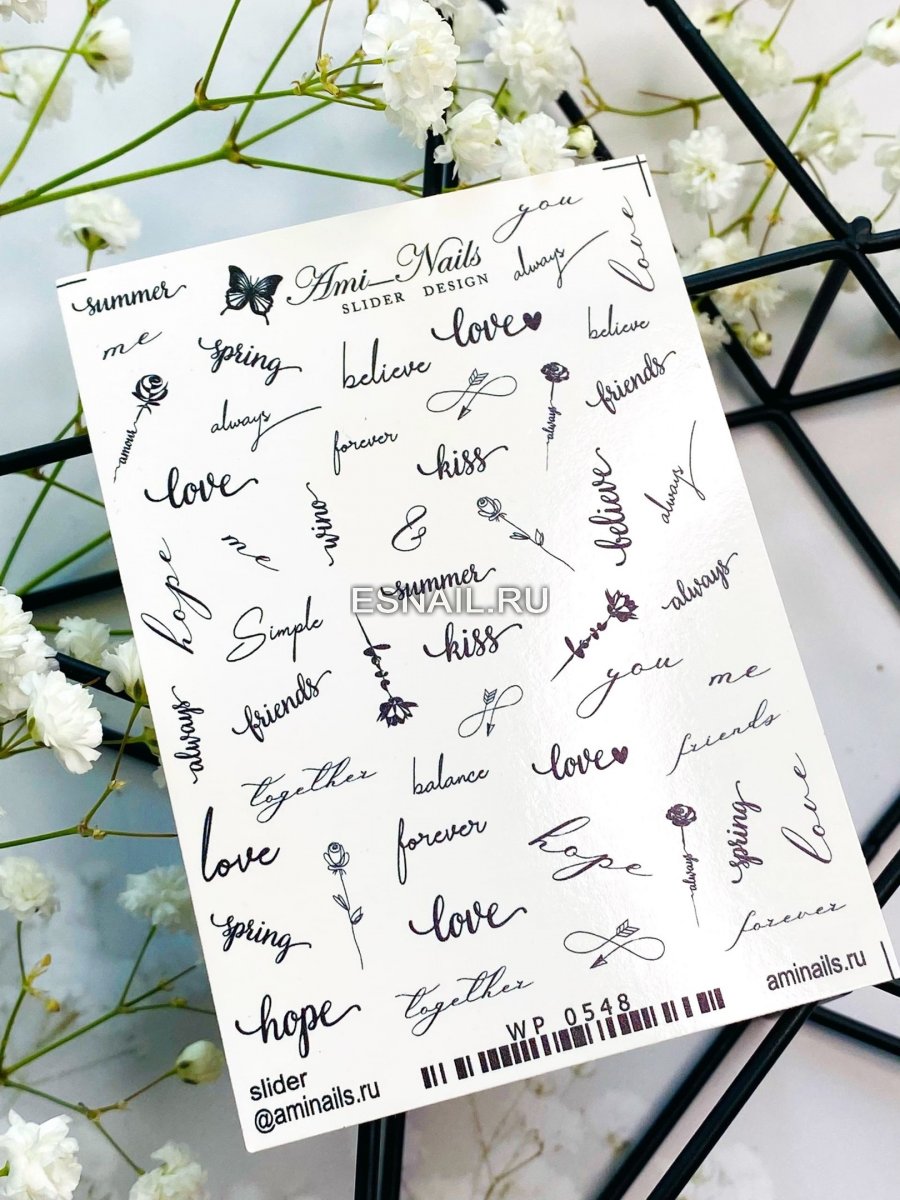 you
love
always
Ami_Nails
SLIDER DESIGN
summer
me
spring
believe
love
believe
amour
always
forever
kiss
always
friends
love
wino
&
believe
always
hope
me
summer
ESNAIL.RU
always
Simple
love
kiss
love
you
me
always
friends
together
balance
love
friends
love
forever
hope
always
spring
love
spring
love
forever
hope
together
WP 0548
aminails.ru
slider
@aminails.ru